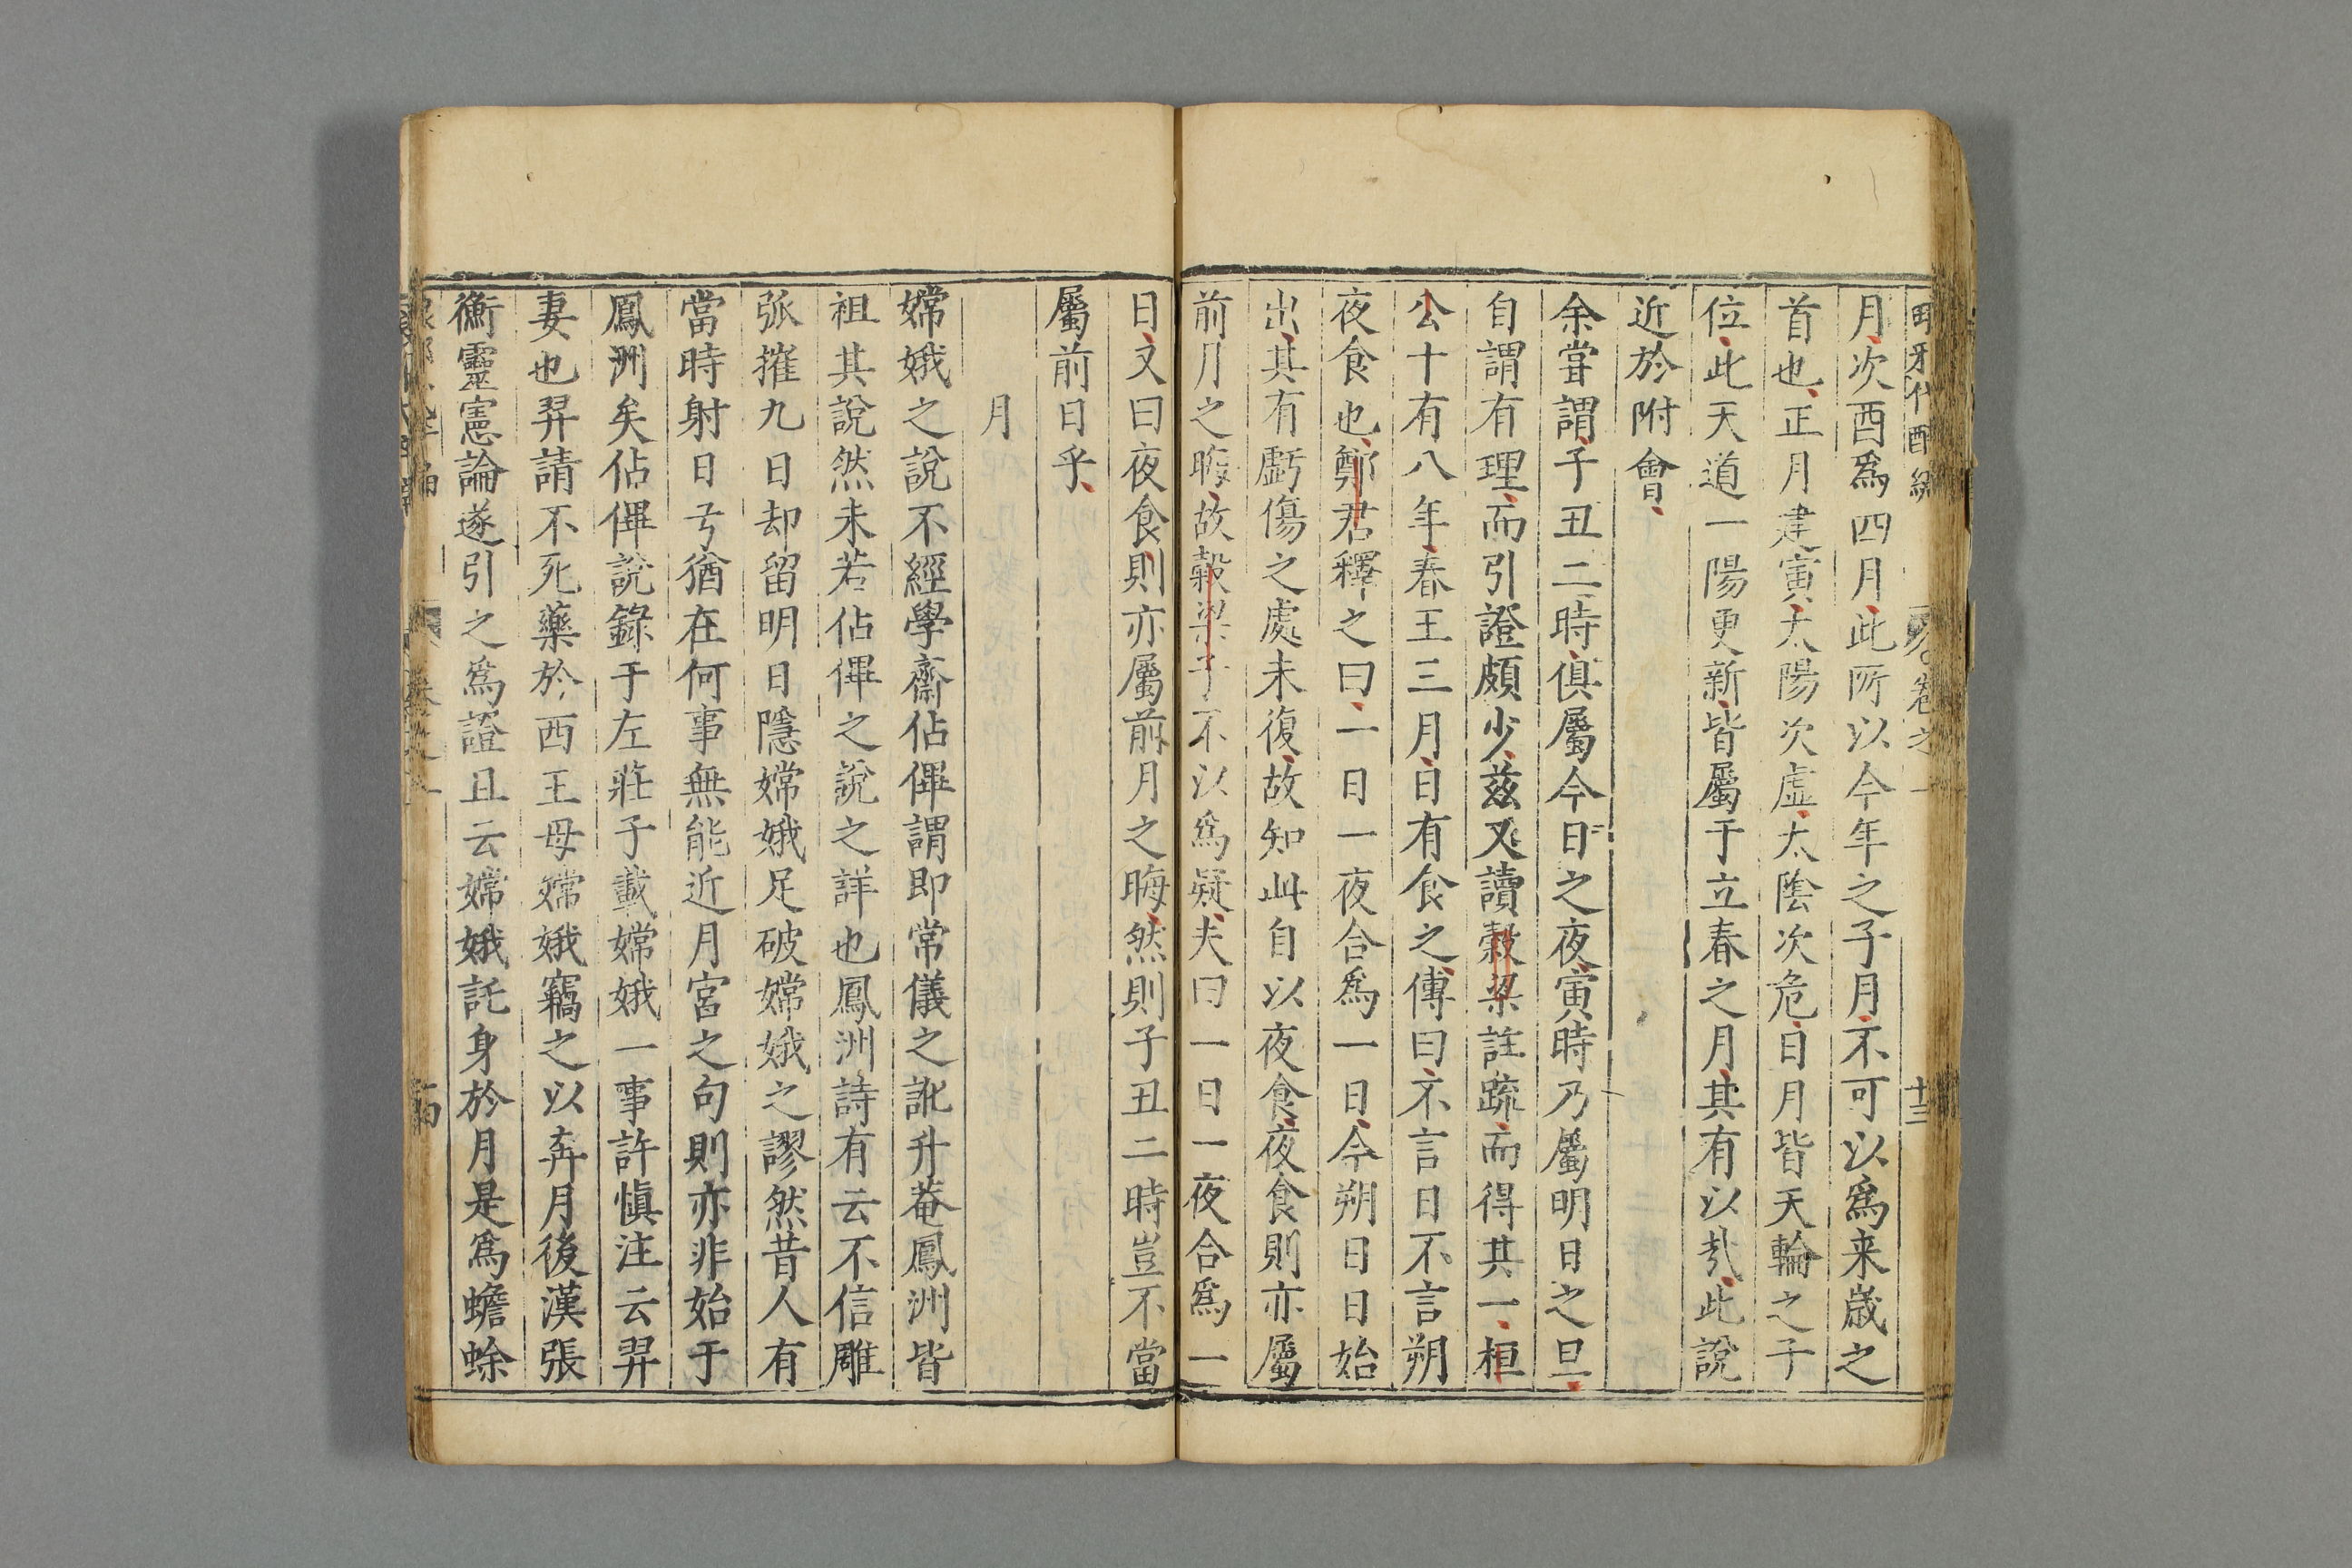 月次酉爲四月此所以今年之子月不可以爲来歳之
首也正月建寅太陽次虛太陰次危日月皆天輪之子
位此天道一陽更新皆屬于立春之月其有以㢤此說
近於附會
余嘗謂子丑二時俱屬今日之夜寅時乃屬明日之旦
自謂有理而引證頗少茲又讀穀梁註疏而得其一桓
公十有八年春王三月日有食之傳曰不言日不言朔
夜食也鄭君釋之曰一日一夜合爲一日今朔日日始
出其有虧傷之處未復故知此自以夜食夜食則亦屬
前月之晦故穀梁子不以爲疑夫曰一日一夜合爲一
日又曰夜食則亦屬前月之晦然則子丑二時豈不當
屬前日乎
月
嫦娥之說不經學齋佔𠌫謂即常儀之訛升菴鳳洲皆
祖其說然未若佔𠌫之說之詳也鳳洲詩有云不信雕
弧摧九日却留明日隱嫦娥足破嫦娥之謬然昔人有
當時射日弓猶在何事無能近月宮之句則亦非始于
鳳洲矣佔𠌫說錄于左莊子載嫦娥一事許愼注云羿
妻也羿請不死藥於西王母嫦娥竊之以奔月後漢張
衡靈憲論遂引之爲證且云嫦娥託身於月是爲蟾蜍